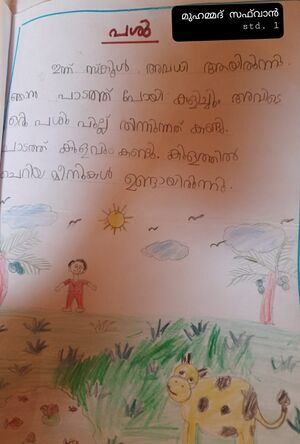 മുഹമ്മദ് സഫ്‌വാൻ
std. 1
പശു
ഇന്ന് സ്കൂൾ അവധി ആയിരുന്നു.
ഞാൻ പാടത്ത് പോയി കളിച്ചു. അവിടെ
ഒരു പശു പുല്ല് തിന്നുന്നത് കണ്ടു.
പാടത്ത് കുളവും കണ്ടു. കുളത്തിൽ
ചെറിയ മീനുകൾ ഉണ്ടായിരുന്നു.